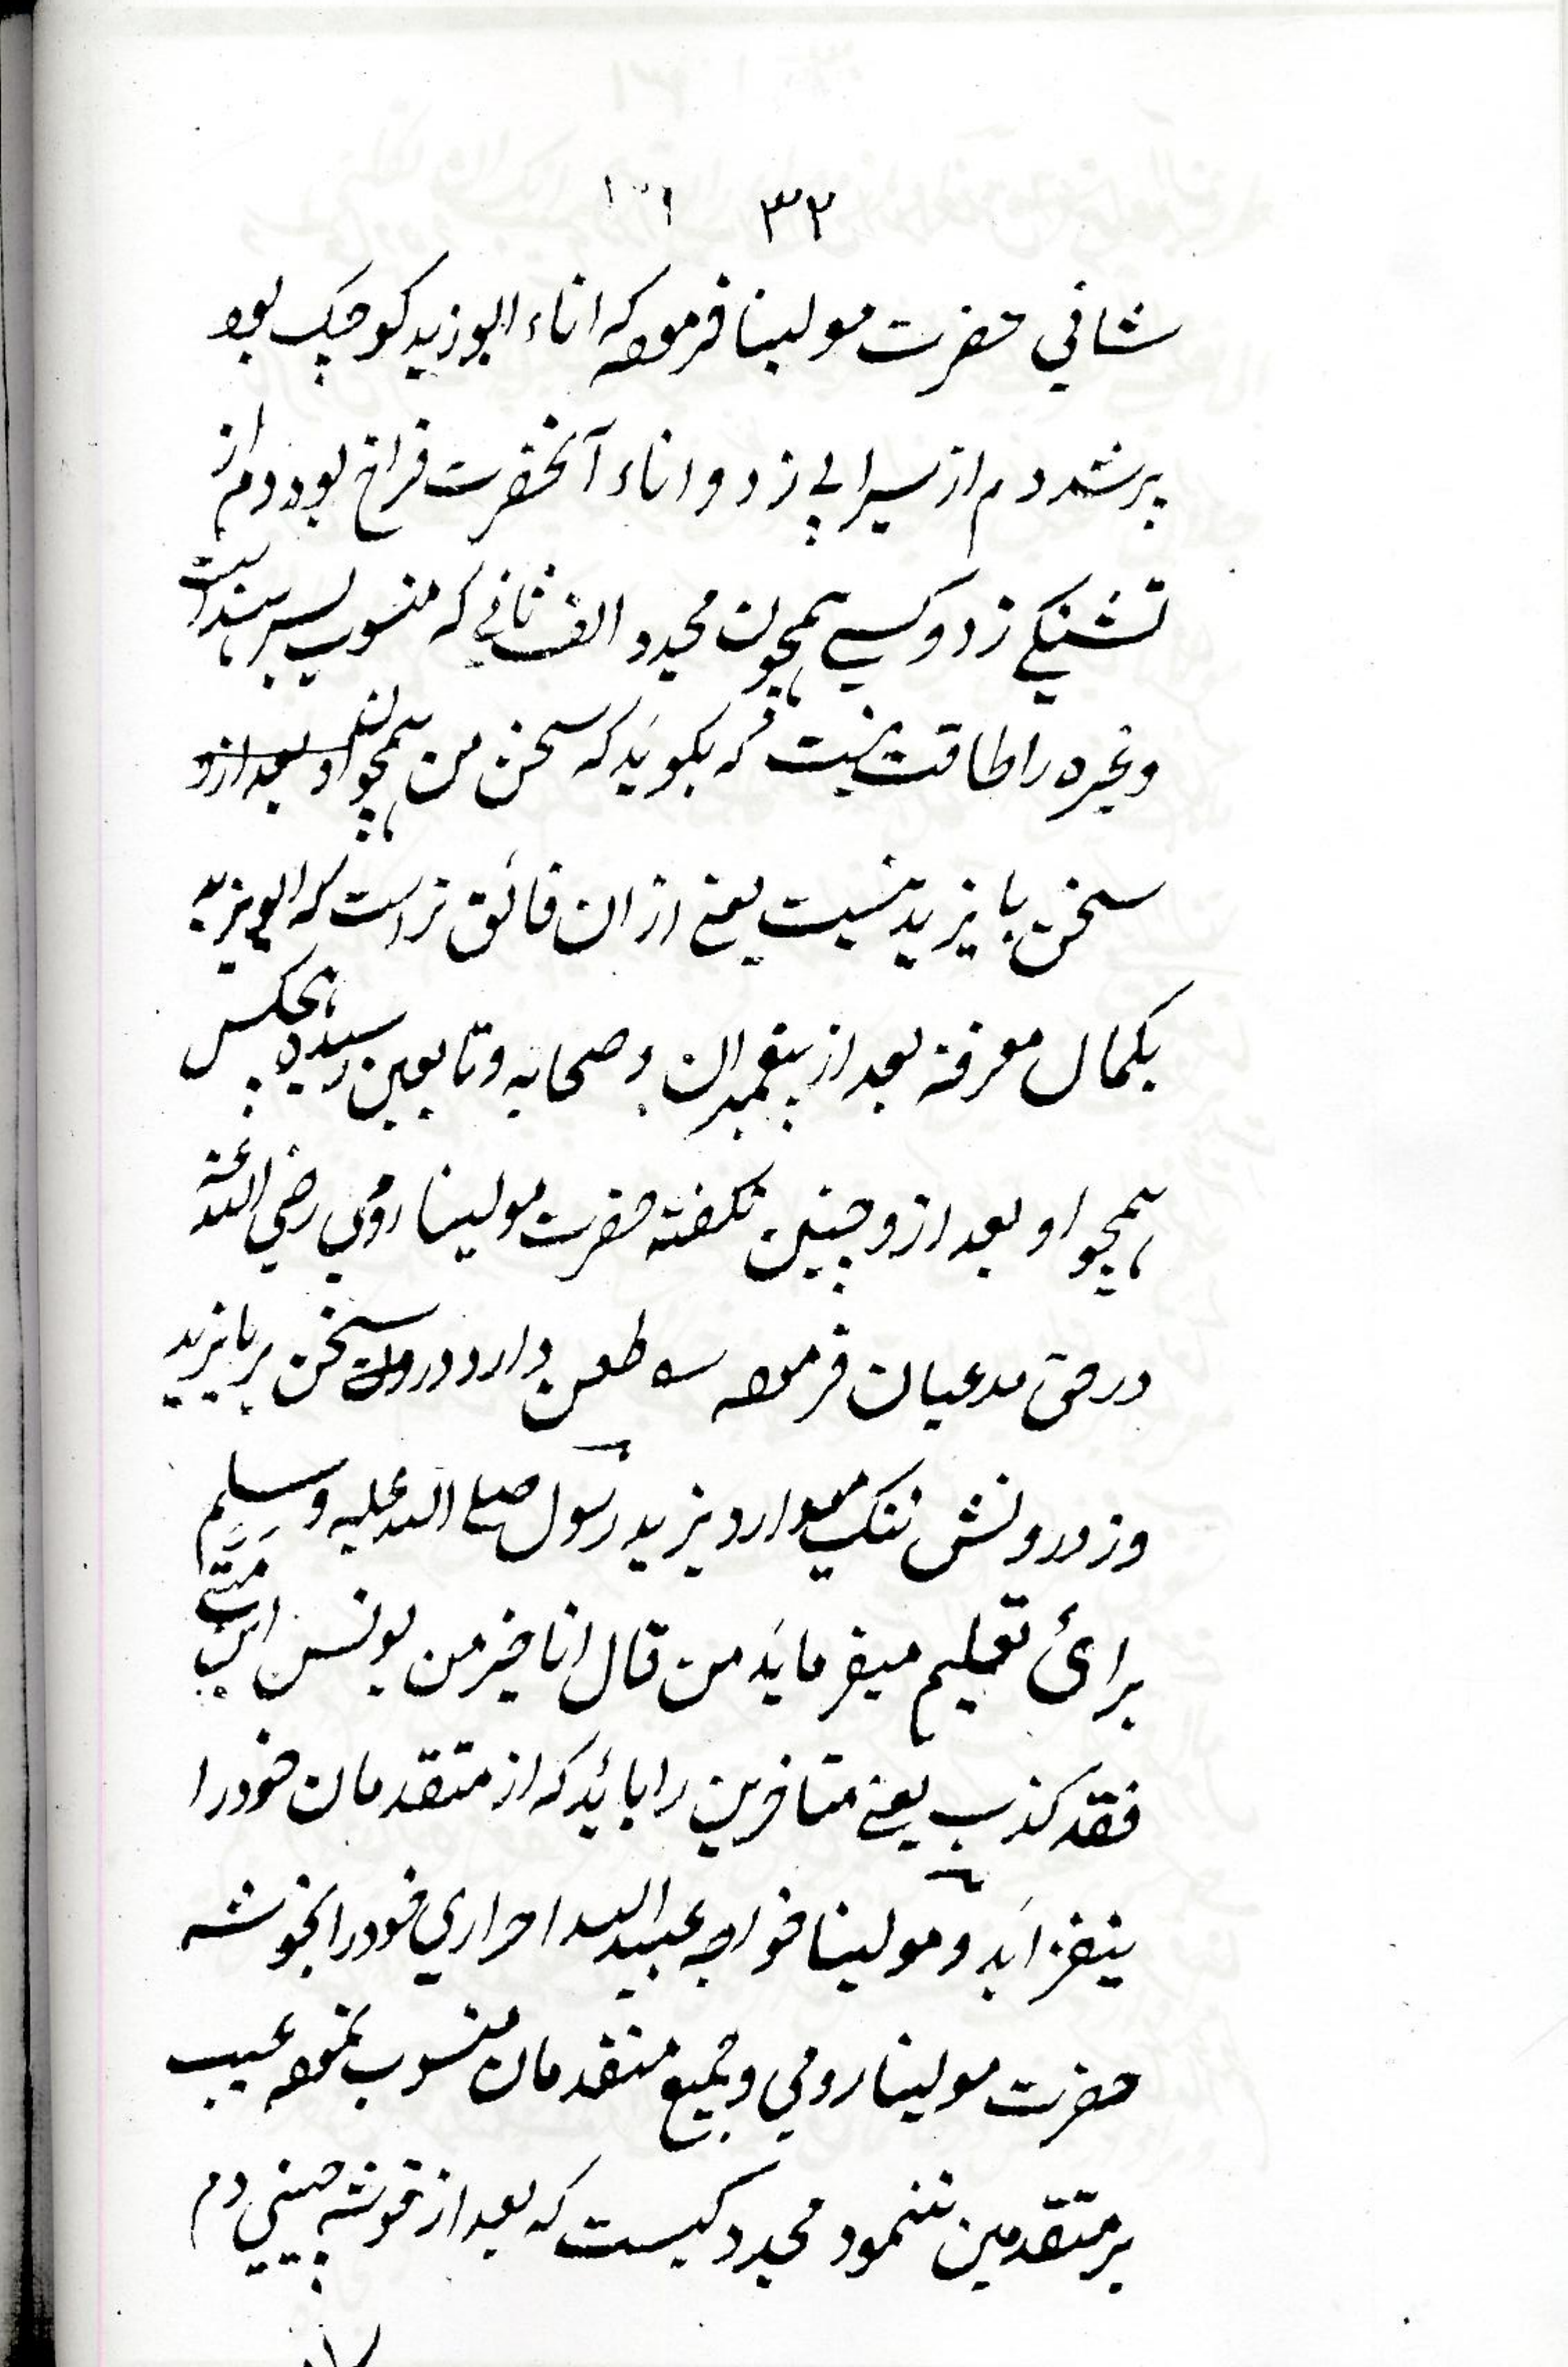 ٣٢
شافي حضرت مولينا فرموده که اناء ابوزيد کوچک بود
پرشد دم از سيرابي زد و اناء آنحضرت فراخ بود دم از
تشنگي زد و کسي همچون مجدد الف ثاني که منسوب بسرهنداست
وغيره را طاقت نيست که بگويد که سخن من همچون او بعد ازو
سخن بايزيد نيست يعني ازان فائق تراست که ابويزيد
بکمال معرفة بعد از پيغمبران و صحابه و تابعين رسيده هيچکس
همچو او بعد ازو چنين نگفته حضرت مولينا رومي رضي الله عنه
در حق مدعيان فرموده ـه طعن دارد در سخن بر بايزيد
وز درونش ننگ ميدارد يزيد رسول صلے الله عليه وسلم
برائ تعليم ميفرمايد من قال انا خير من يونس ابن متّے
فقد کذب يعني متاخرين را بايد که از متقدمان خود را
نيفزايد و مولينا خواجه عبيد الله احراري خود را بخوشه
حضرت مولينا رومي وجميع متقدمان منسوب نموده عيب
بر متقدمين ننمود مجدد کيست که بعد از خوشه چيني دم